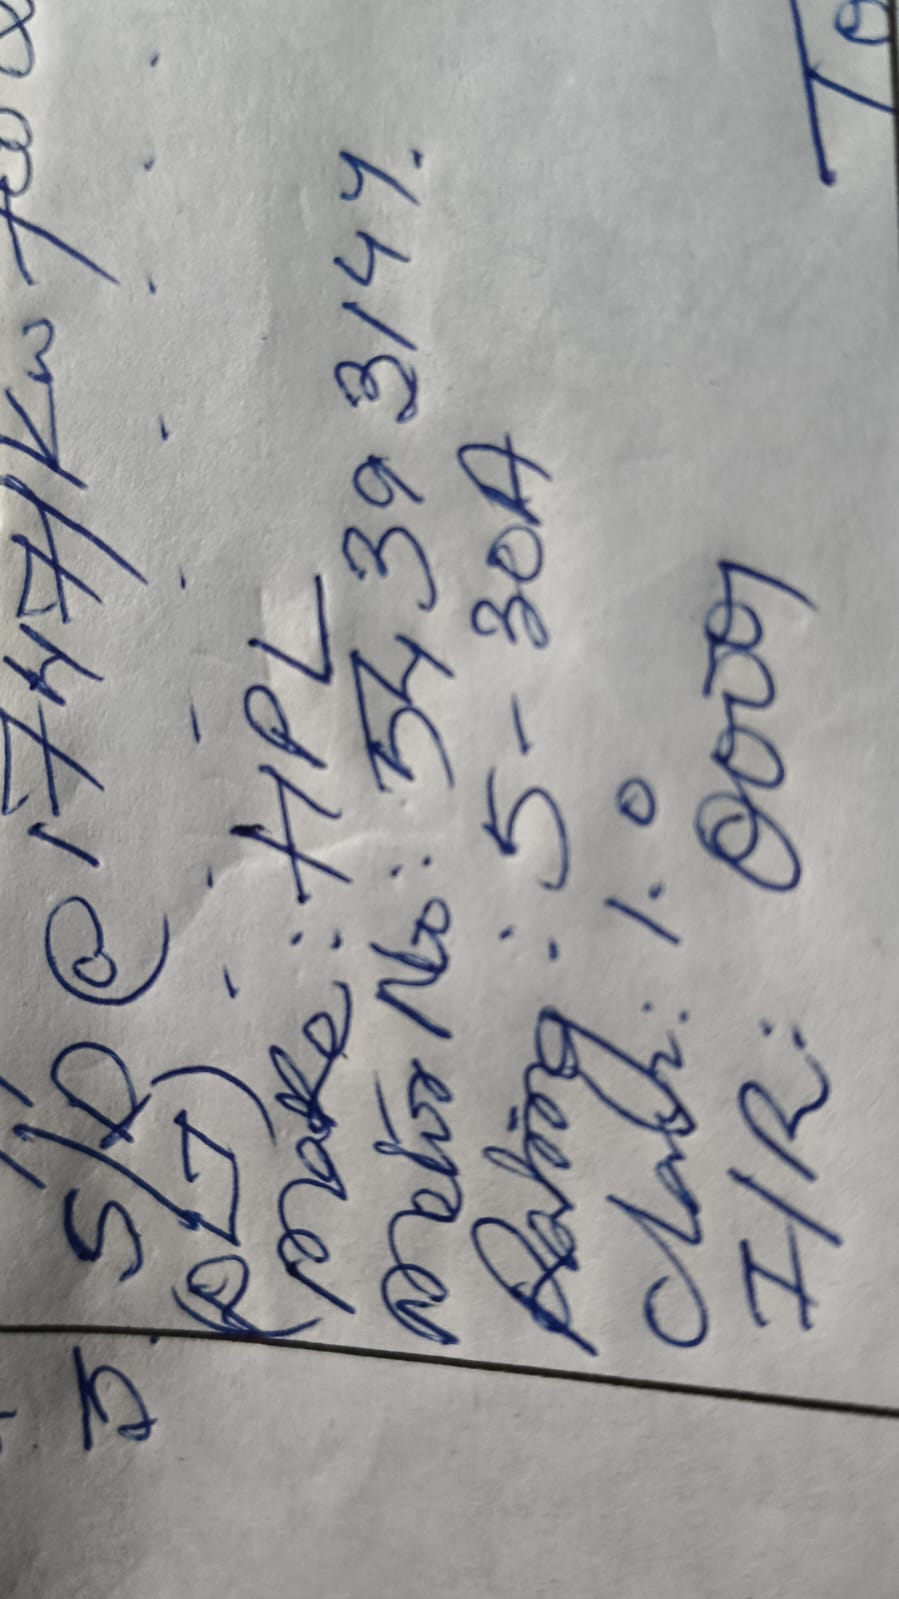 5. S/D @ 1747/Kw
Make : HPL
Meter No : 54393147.
Rating : 5-30A
Class : 1.0
I/R : 00009
To